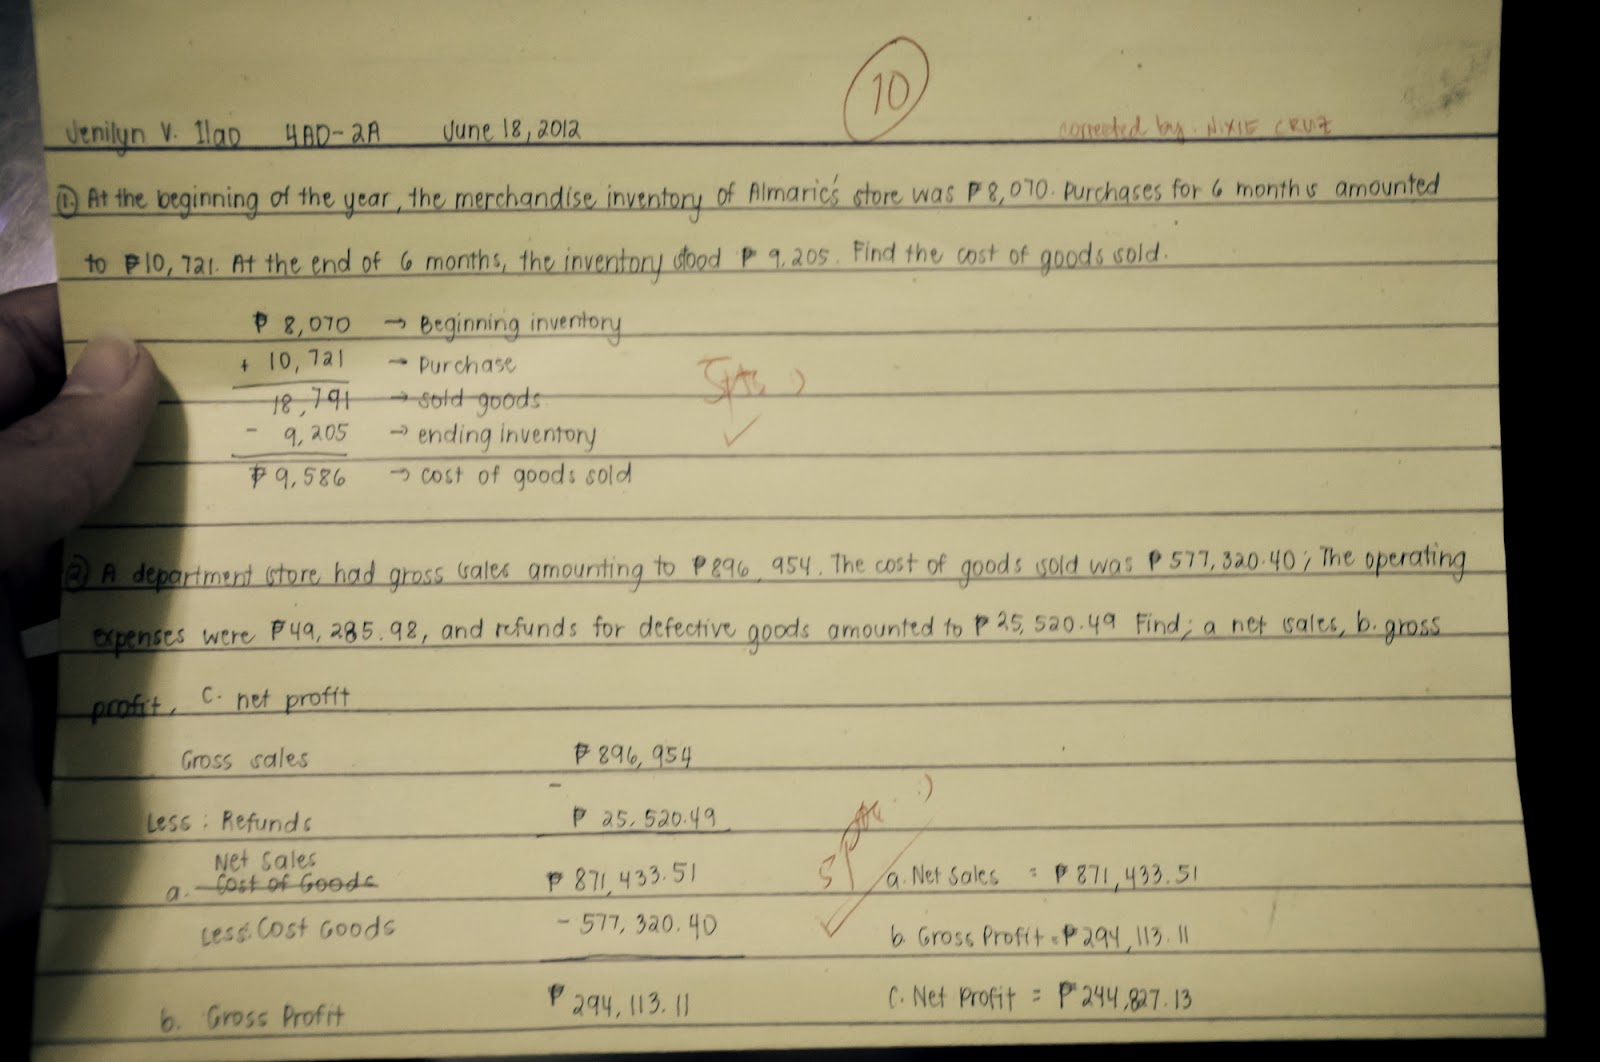 10
Jenilyn V. Ilao 4AD-2A June 18, 2012
corrected by. NIXIE CRUZ
1. At the beginning of the year, the merchandise inventory of Almaric's store was ₱8,070. Purchases for 6 months amounted
to ₱10,721. At the end of 6 months, the inventory stood ₱ 9,205. Find the cost of goods sold.
₱ 8,070 → Beginning inventory
+ 10,721 → Purchase
18,791 → sold goods
- 9,205 → ending inventory
₱9,586 → cost of goods sold
5pts :)
2. A department store had gross sales amounting to ₱896,954. The cost of goods sold was ₱577,320.40; The operating
expenses were ₱49,285.98, and refunds for defective goods amounted to ₱25,520.49 Find; a net sales, b. gross
profit, C. net profit
Gross sales ₱896,954
-
Less: Refunds ₱ 25,520.49
Net Sales
a. Cost of Goods ₱ 871,433.51
Less: Cost Goods - 577,320.40
b. Gross Profit ₱ 294,113.11
5pts :)
a. Net Sales = ₱871,433.51
b. Gross Profit = ₱294,113.11
C. Net Profit = ₱244,827.13